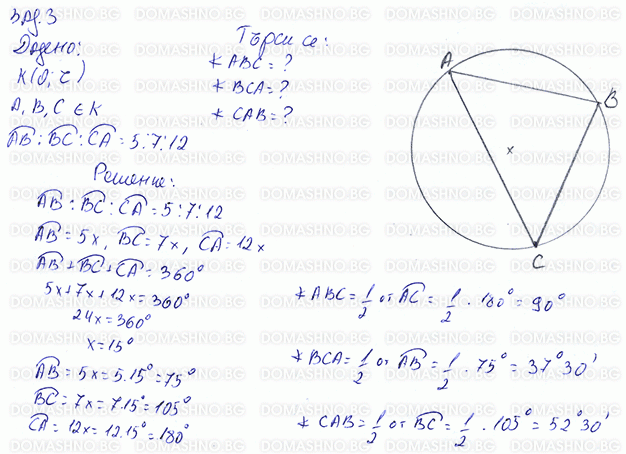 Зад. 3
Дадено:
k(O; r)
A, B, C ∈ k
AB : BC : CA = 5:7:12
Търси се:
∢ ABC = ?
∢ BCA = ?
∢ CAB = ?
Решение:
AB : BC : CA = 5:7:12
AB = 5x, BC = 7x, CA = 12x
AB + BC + CA = 360°
5x + 7x + 12x = 360°
24x = 360°
x = 15°
AB = 5x = 5.15° = 75°
BC = 7x = 7.15° = 105°
CA = 12x = 12.15° = 180°
A
B
x
C
∢ ABC = 1/2 от AC = 1/2 . 180° = 90°
∢ BCA = 1/2 от AB = 1/2 . 75° = 37°30'
∢ CAB = 1/2 от BC = 1/2 . 105° = 52°30'
DOMASHNO.BG